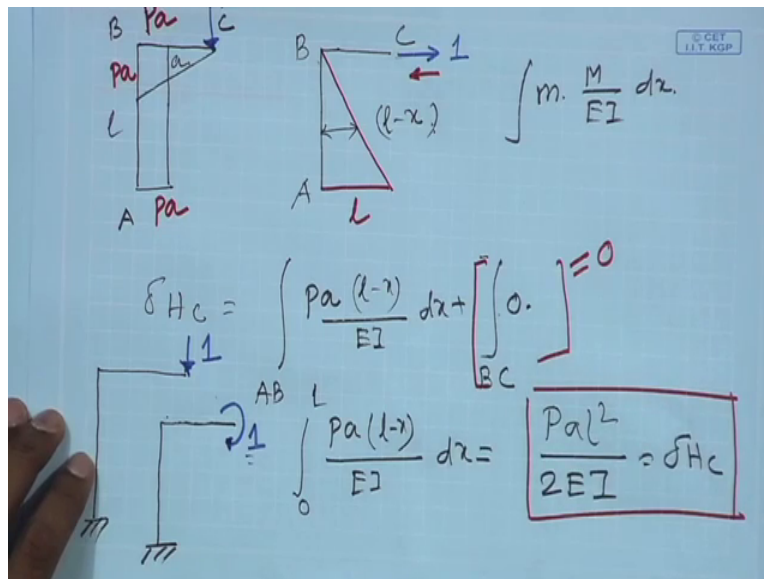 Pa
B C
Pa a
l
A Pa
B C 1
(l-x)
A l
∫ m. M/EI dx.
© CET
I.I.T. KGP
δHc = ∫AB Pa(l-x)/EI dx + [∫BC 0. ] = 0
1
1
∫0L Pa(l-x)/EI dx = Pal²/2EI = δHc